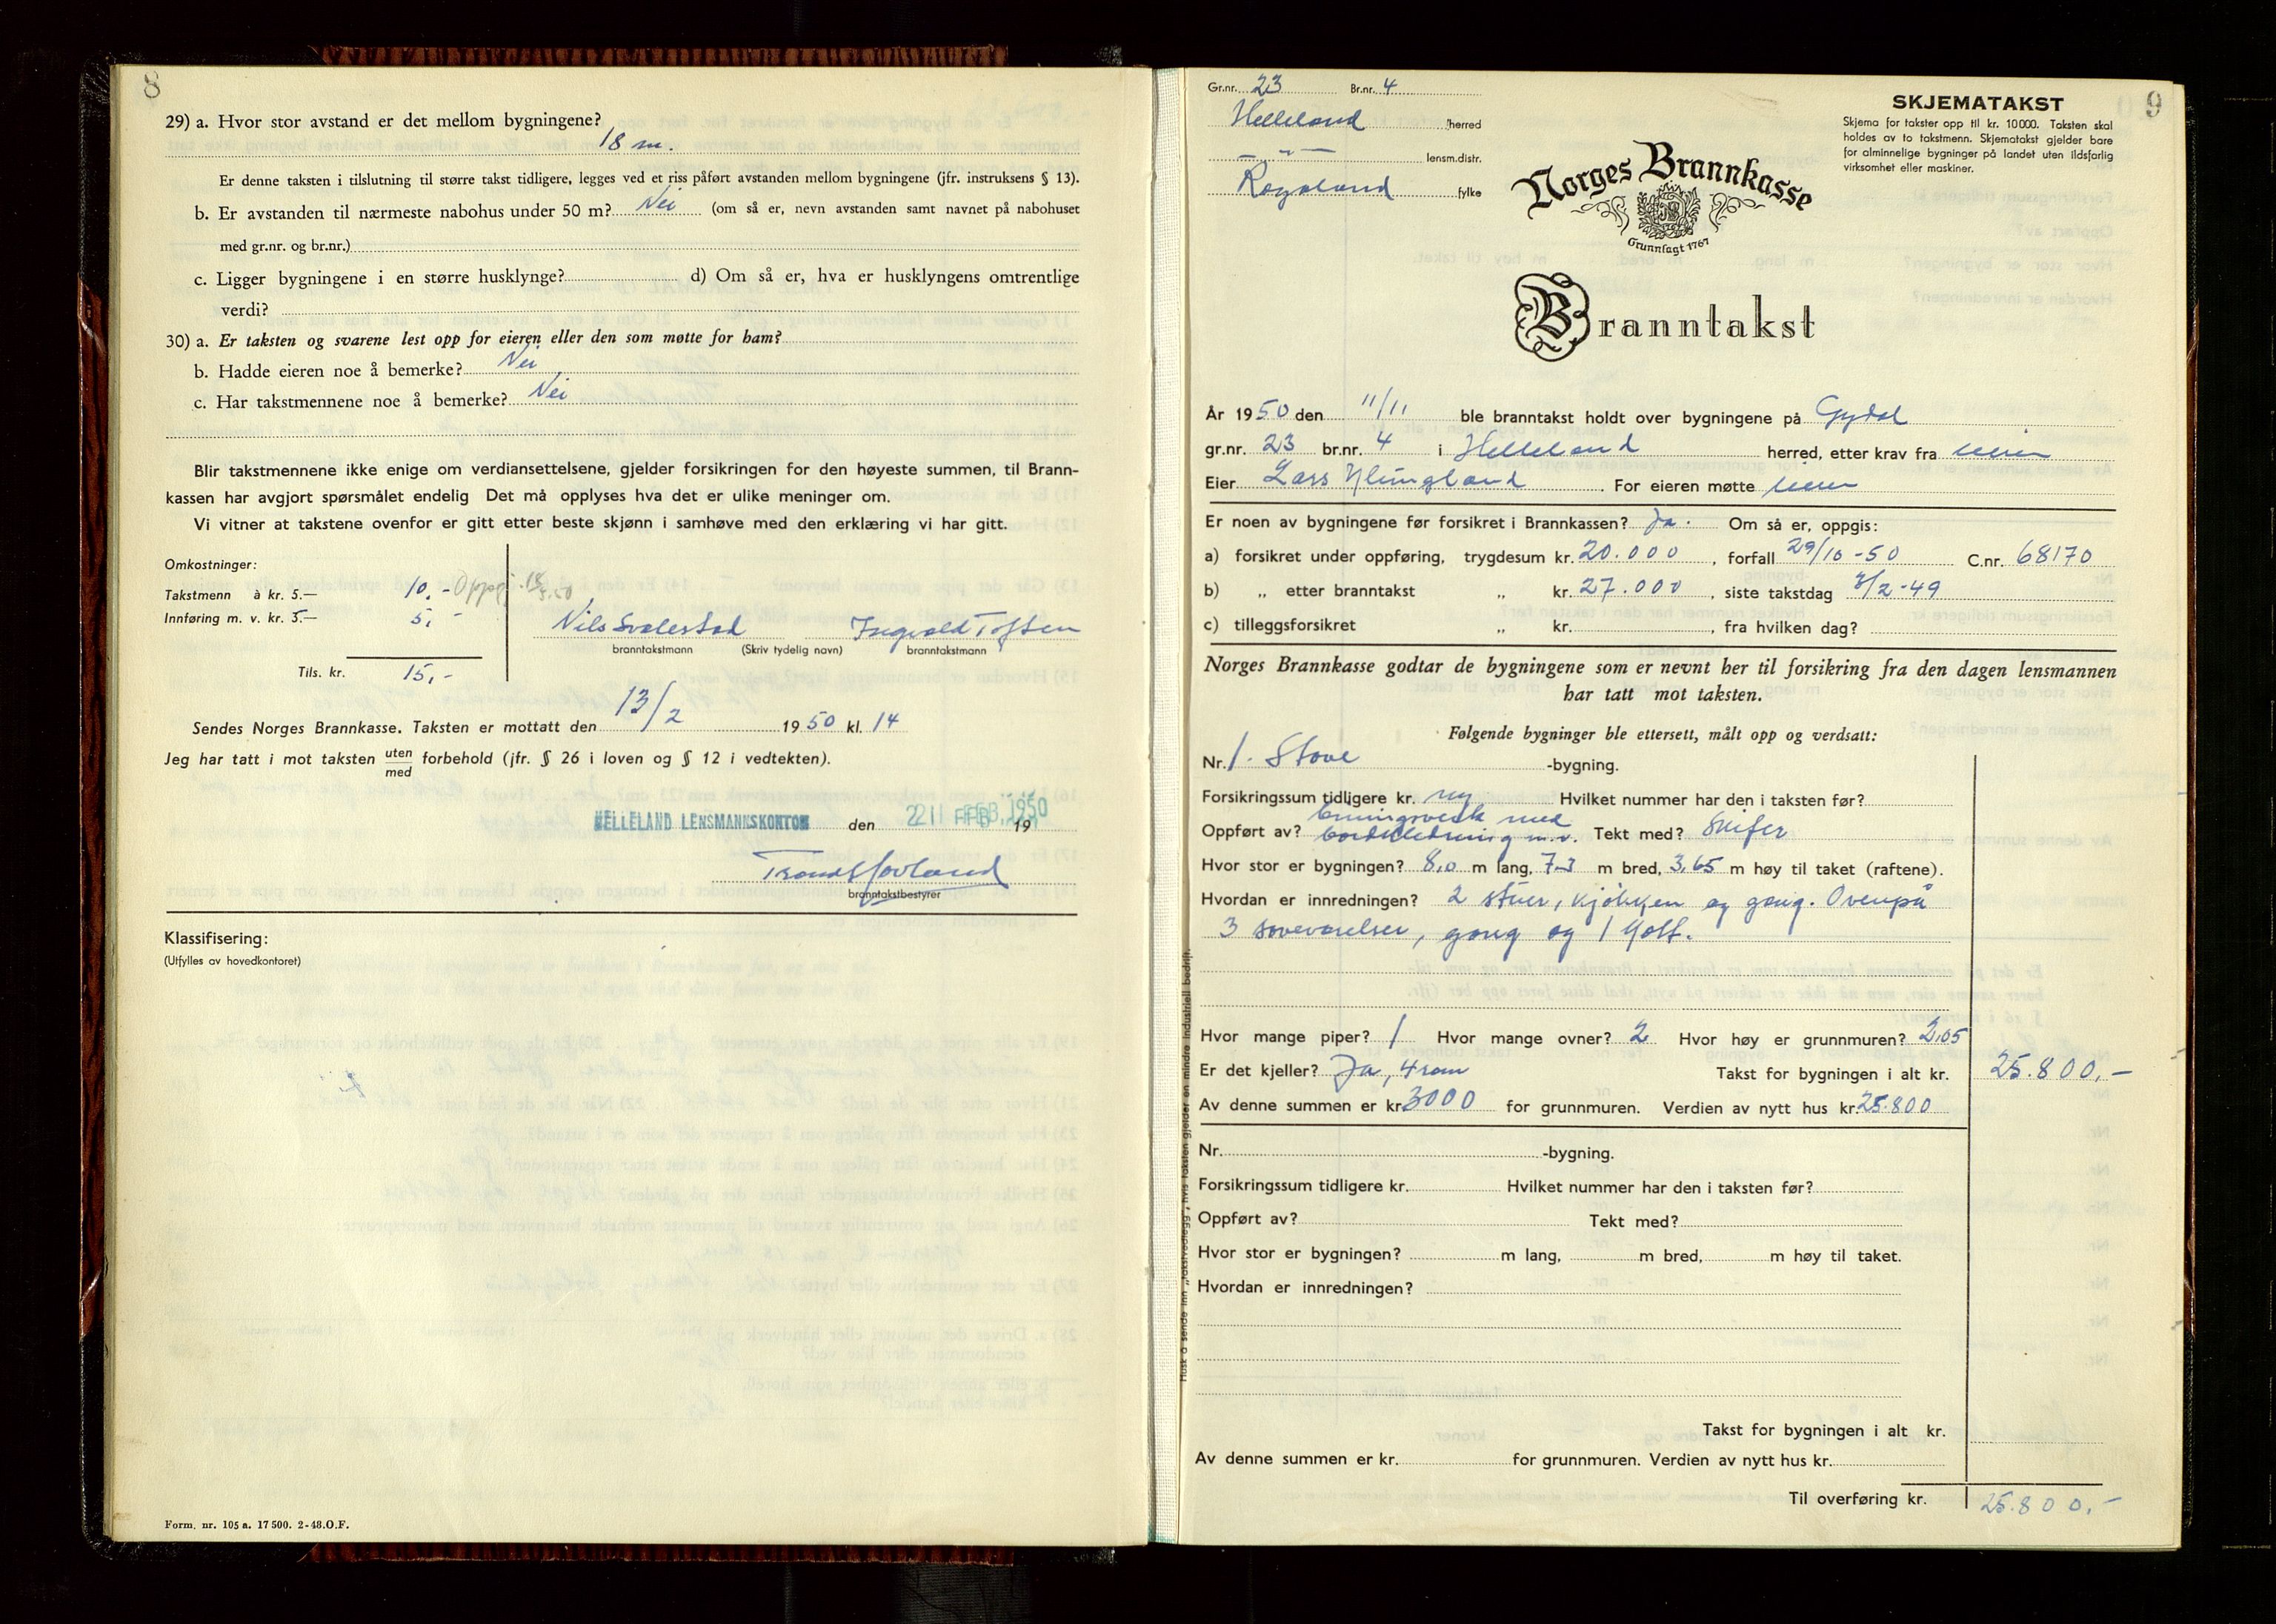 8
29) a. Hvor stor avstand er det mellom bygningene?
18 m.
Er denne taksten i tilslutning til større takst tidligere, legges ved et riss påført avstanden mellom bygningene (jfr. instruksens § 13).
b. Er avstanden til nærmeste nabohus under 50 m? Nei (om så er, nevn avstanden samt navnet på nabohuset
med gr.nr. og br.nr.)
c. Ligger bygningene i en større husklynge? d) Om så er, hva er husklyngens omtrentlige
verdi?
30) a. Er taksten og svarene lest opp for eieren eller den som møtte for ham?
b. Hadde eieren noe å bemerke? Nei
c. Har takstmennene noe å bemerke? Nei
Blir takstmennene ikke enige om verdiansettelsene, gjelder forsikringen for den høyeste summen, til Brann-
kassen har avgjort spørsmålet endelig Det må opplyses hva det er ulike meninger om.
Vi vitner at takstene ovenfor er gitt etter beste skjønn i samhøve med den erklæring vi har gitt.
Omkostninger:
Takstmenn à kr. 5.— 10,-
Innføring m. v. kr. 5.— 5,-
Nils Svalestad Ingvald Toften
branntakstmann (Skriv tydelig navn) branntakstmann
Tils. kr. 15,-
Sendes Norges Brannkasse. Taksten er mottatt den 13/2 1950 kl. 14
Jeg har tatt i mot taksten uten forbehold (jfr. § 26 i loven og § 12 i vedtekten).
med
HELLELAND LENSMANNSKONTOR den FEB. 1950 19
Trond Hovland
branntakstbestyrer
Klassifisering:
(Utfylles av hovedkontoret)
Form. nr. 105 a. 17 500. 2-48. O.F.
Gr.nr. 23 Br.nr. 4
Helleland herred
— " — lensm.distr.
Rogaland fylke
SKJEMATAKST
9
Skjema for takster opp til kr. 10000. Taksten skal
holdes av to takstmenn. Skjematakst gjelder bare
for alminnelige bygninger på landet uten ildsfarlig
virksomhet eller maskiner.
Norges Brannkasse
Grunnlagt 1767
Branntakst
År 1950 den 11/11 ble branntakst holdt over bygningene på Gydal
gr.nr. 23 br.nr. 4 i Helleland herred, etter krav fra eieren
Eier Lars Klungland For eieren møtte eieren
Er noen av bygningene før forsikret i Brannkassen? Ja. Om så er, oppgis:
a) forsikret under oppføring, trygdesum kr. 20.000, forfall 29/10-50 C.nr. 68170
b) „ etter branntakst „ kr. 27.000, siste takstdag 3/2-49
c) tilleggsforsikret „ kr. , fra hvilken dag?
Norges Brannkasse godtar de bygningene som er nevnt her til forsikring fra den dagen lensmannen
har tatt mot taksten.
Følgende bygninger ble ettersett, målt opp og verdsatt:
Nr. 1. Stove -bygning.
Forsikringssum tidligere kr. ny Hvilket nummer har den i taksten før?
bindingsverk med
Oppført av? bordkledning m.v. Tekt med? Skifer
Hvor stor er bygningen? 8,0 m lang, 7,3 m bred, 3,65 m høy til taket (raftene).
Hvordan er innredningen? 2 stuer, kjøkken og gang. Ovenpå
3 soveværelser, gang og 1 loft.
Hvor mange piper? 1 Hvor mange ovner? 2 Hvor høy er grunnmuren? 2,05
Er det kjeller? Ja, 4 rom Takst for bygningen i alt kr. 25.800,-
Av denne summen er kr. 3000 for grunnmuren. Verdien av nytt hus kr. 25.800
Nr. -bygning.
Forsikringssum tidligere kr. Hvilket nummer har den i taksten før?
Oppført av? Tekt med?
Hvor stor er bygningen? m lang, m bred, m høy til taket.
Hvordan er innredningen?
Takst for bygningen i alt kr.
Av denne summen er kr. for grunnmuren. Verdien av nytt hus kr.
Til overføring kr. 25.800,-
Husk å sende inn „Takstvedlegg", hvis taksten gjelder en mindre industriell bedrift.